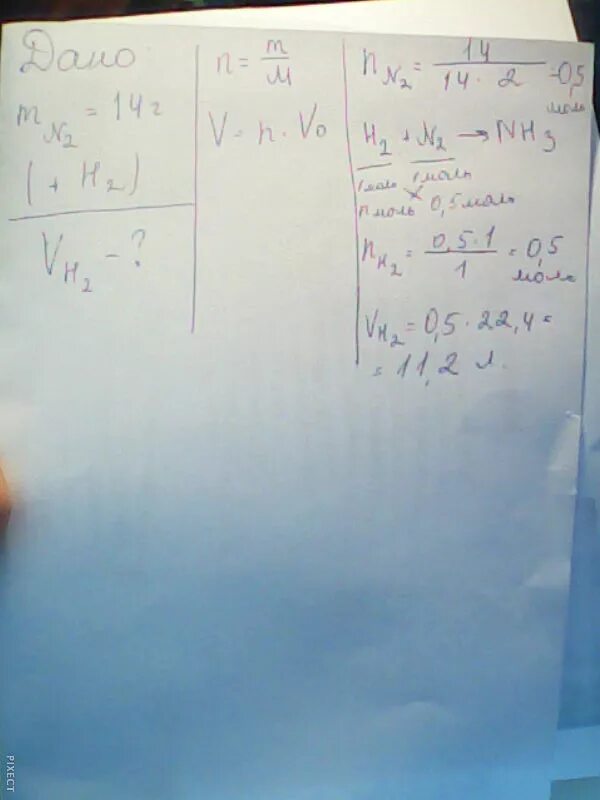 Дано
m N₂ = 14 г
(+ H₂)
V H₂ - ?
n = m/M
V = n · V₀
n N₂ = 14/(14 · 2) = 0,5 моль
H₂ + N₂ → NH₃
1 моль 1 моль
n моль 0,5 моль
n H₂ = (0,5 · 1)/1 = 0,5 моль
V H₂ = 0,5 · 22,4 =
= 11,2 л.
PIXECT